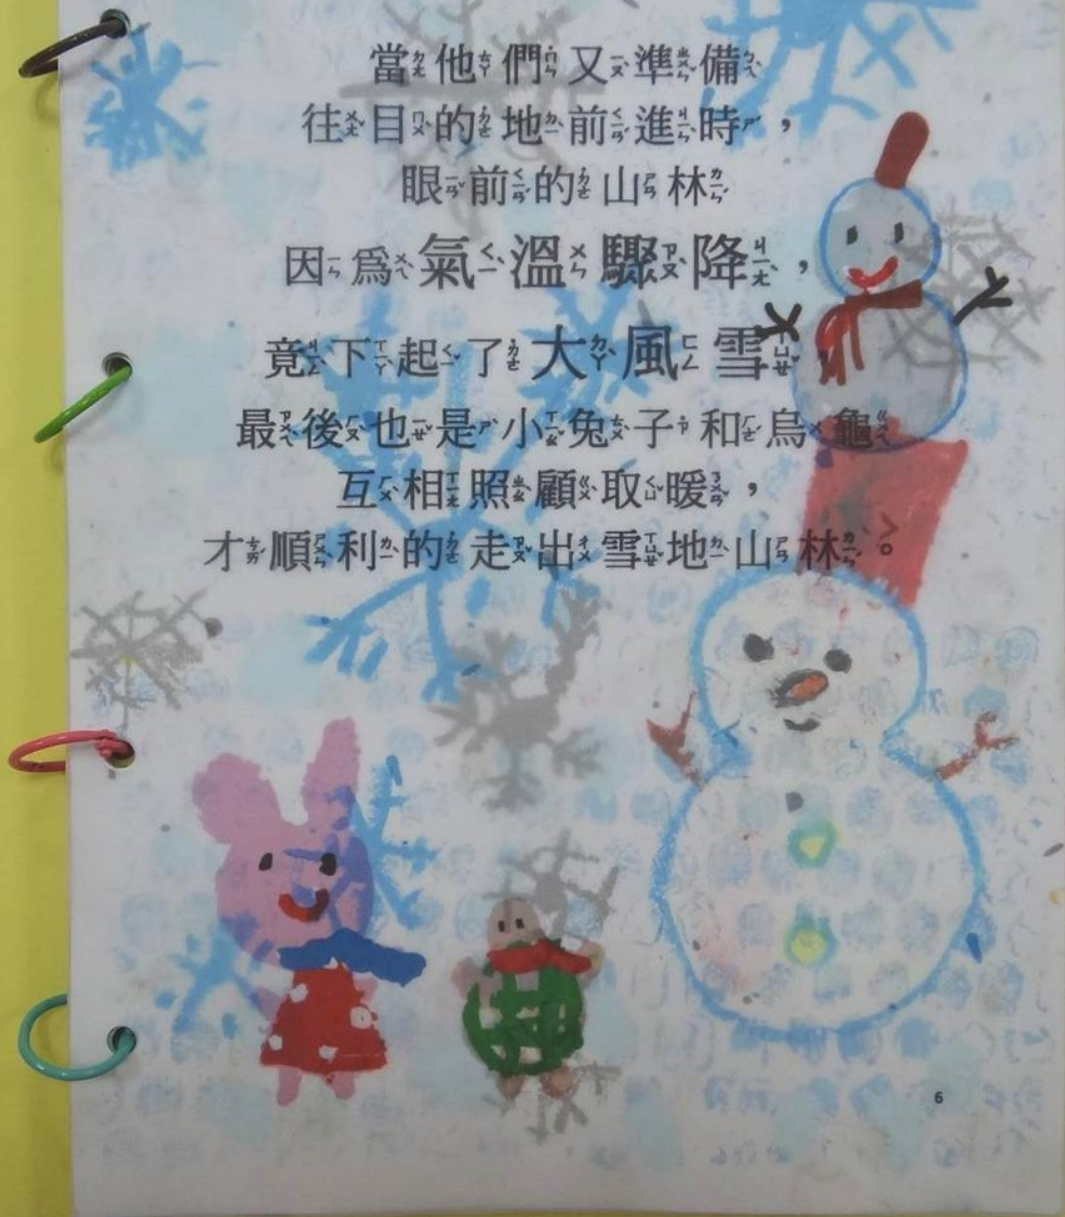 當他們又準備
往目的地前進時，
眼前的山林
因為氣溫驟降，
竟下起了大風雪，
最後也是小兔子和烏龜
互相照顧取暖，
才順利的走出雪地山林。
6